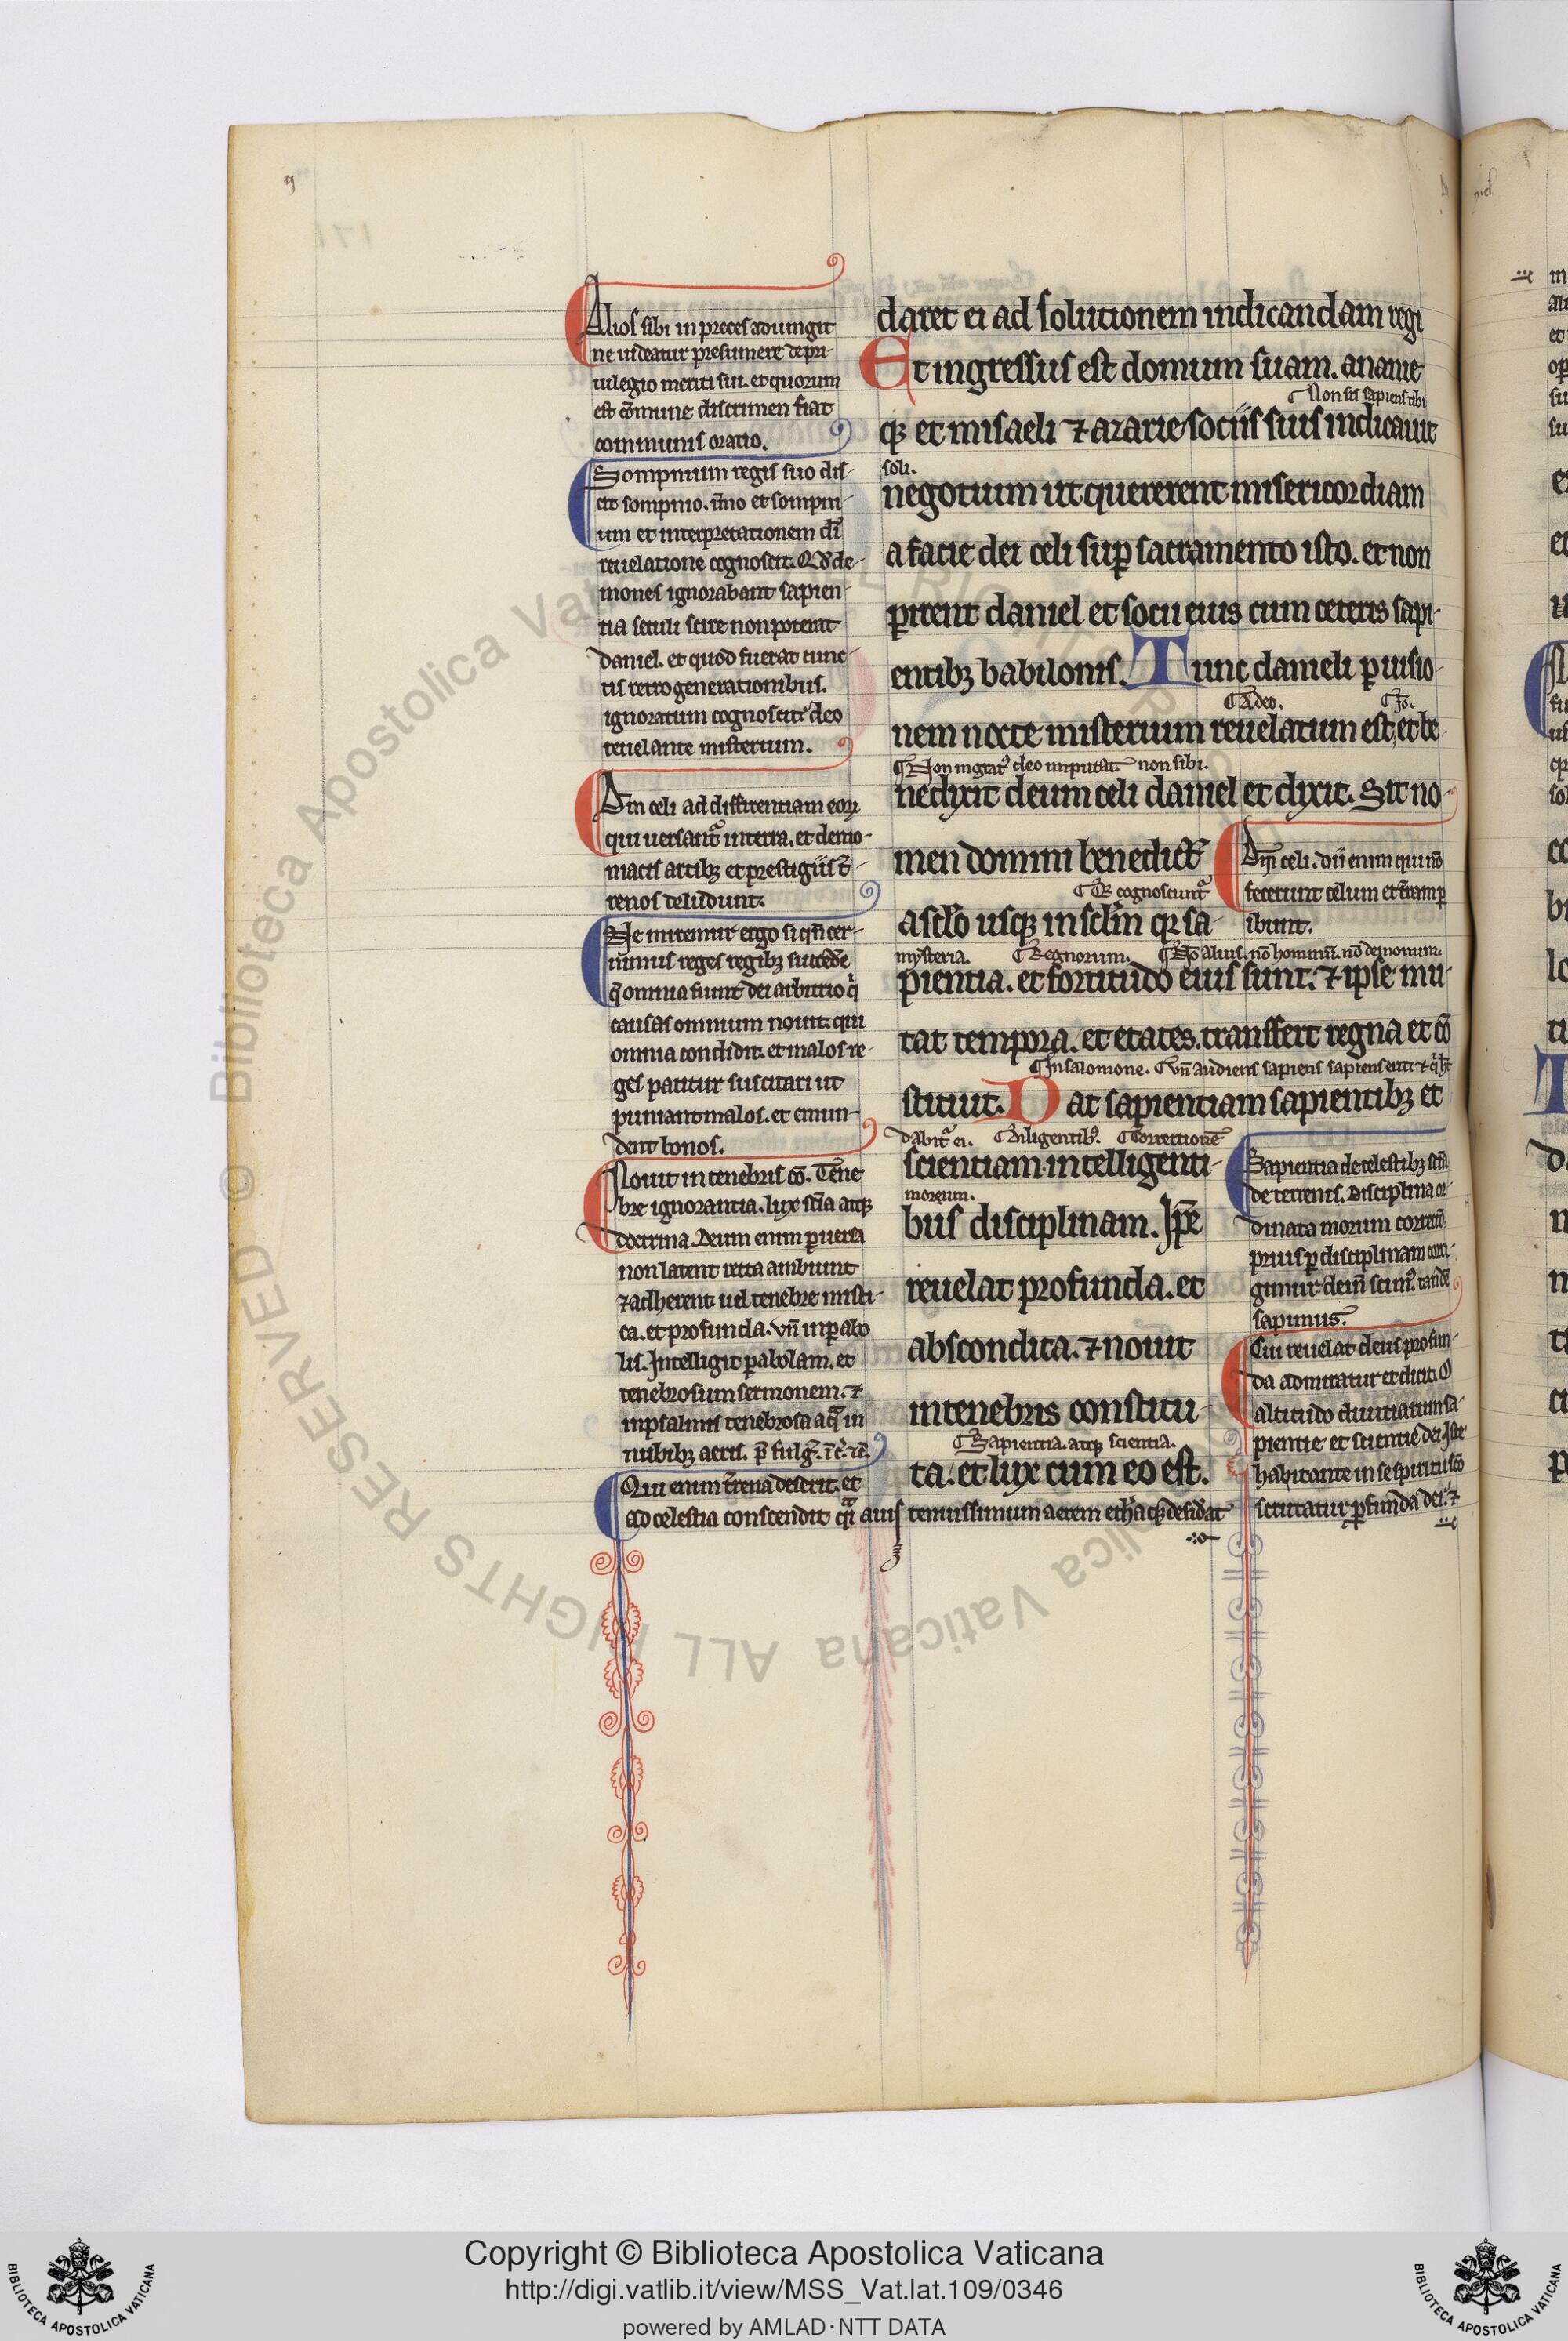 Alios sibi in preces adiungit
ne uideatur presumere de pri-
uilegio meriti sui. et quorum
est cōmune discrimen fiat
communis oratio.
Sompnium regis suo dis-
cit sompnio. īmo et sompni-
um et interpretationem dī
reuelatione cognoscit. Qđ de-
mones ignorabant sapien-
tia seculi scire non poterat
daniel. et quod fuerat cunc-
tis retro generationibus.
ignoratum cognoscit deo
reuelante misterium.
Dm̄ celi ad differentiam eoꝝ
qui uersant᷑ in terra. et demo-
niacis artibꝫ et prestigiis t̄-
renos deludunt.
Ne miremur ergo si qn̄ cer-
nimus reges regibꝫ succedẽ
q̄ omnia fiunt dei arbitrio q̄
causas omnium nouit. qui
omnia condidit. et malos re-
ges patitur suscitari ut
puniant malos. et emun-
dent bonos.
Nouit in tenebris cō. Tēne
bre ignorantia. lux scīa atqꝫ
doctrina. Deum enim ꝑuersa
non latent recta ambiunt
⁊ adherent. uel tenebre misti-
ca. et profunda. vn̄ in ꝑabo
lis. Intelligit ꝑabolam. et
tenebrosum sermonem. ⁊
in psalmis tenebrosa aq̄ in
nubibꝫ aeris. p̄ fulg̃.
Qui enim t̄rena deserit. et
ad celestia conscendit q̄i auis tenuissimum aerem
daret ei ad solutionem indicandam regi
Et ingressus est domum suam. ananie
Non sis sapiens tibi
qꝫ et misaeli ⁊ azarie sociis suis indicauit
soli.
negotium ut quererent misericordiam
a facie dei celi suꝑ sacramento isto. et non
ꝑirent daniel et socii eius cum ceteris sapi-
entibꝫ babilonis. Tunc danieli ꝑ uisio-
A deo.
nem nocte misterium reuelatum est, et be-
Non ingratꝰ deo imputat. non sibi.
nedixit deum celi daniel et dixit. Sit no-
men domini benedictꝭ
cognoscunt᷑
a sclō usqꝫ in sclm̄ qꝛ sa-
mysteria. Regnorum. Nō alius. nō hominū. nō demonum.
pientia. et fortitudo eius sunt. ⁊ ipse mu-
tat tempora. et etates. transfert regna et cō
In salomone. vn̄ audiens sapiens sapiens erit ⁊
stituit. Dat sapientiam sapientibꝫ et
dabit᷑ ei. Diligentibꝰ. Correctionē
scientiam intelligenti-
morum.
bus disciplinam. Ip̄e
reuelat profunda. et
abscondita. ⁊ nouit
in tenebris constitu-
Sapientia. atqꝫ scientia.
ta. et lux cum eo est.
Dm̄ celi. dii enim qui nō
fecerunt celum et t̄ram ꝑ
ibunt.
Sapientia de celestibꝫ scīa
de terrenis. Disciplina or-
dinata morum correctō.
prius ꝑ disciplinam corri-
gimur dein̄ scimꝰ. tandē
sapimus.
Cui reuelat deus profun-
da admiratur et dicit. O
altitudo diuitiarum sa-
pientie et scientie dei. Iste
habitante in se spiritu scō
scrutatur ꝓfunda dei. ⁊
Copyright © Biblioteca Apostolica Vaticana
http://digi.vatlib.it/view/MSS_Vat.lat.109/0346
powered by AMLAD·NTT DATA